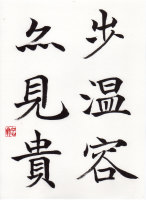 歩温容
見貴